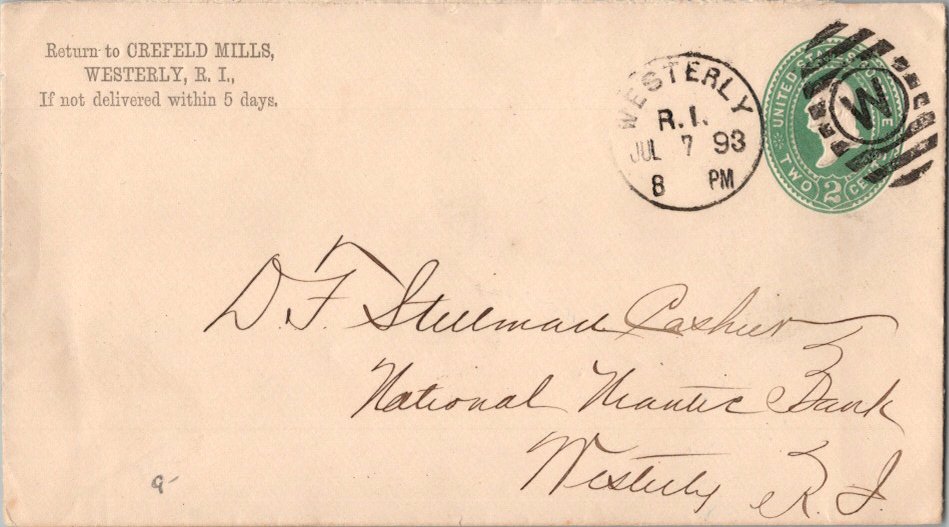 Return to CREFELD MILLS,
WESTERLY, R. I.,
If not delivered within 5 days.
WESTERLY
R. I.
JUL 7 93
8 PM
UNITED STATES
W
TWO 2 CENT
D. F. Stillman Cashier
National Niantic Bank
Westerly R. I.
9-